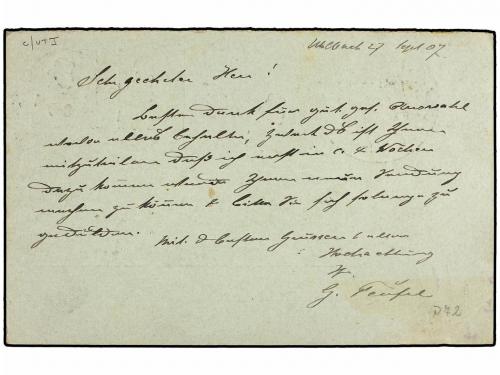 c/ut I
Uhlbach 27 Sept 07
Sehr geehrter Herr!
Besten Dank für güt. gef. Auswahl
werde alles behalten,
mitzuteilen daß ich erst in c. 4 Wochen
dazu kommen werde Ihnen meine Sendung
machen zu können & bitte Sie sich solange zu
gedulden.
Mit d besten Grüssen
Hochachtung
G. Teufel
P72